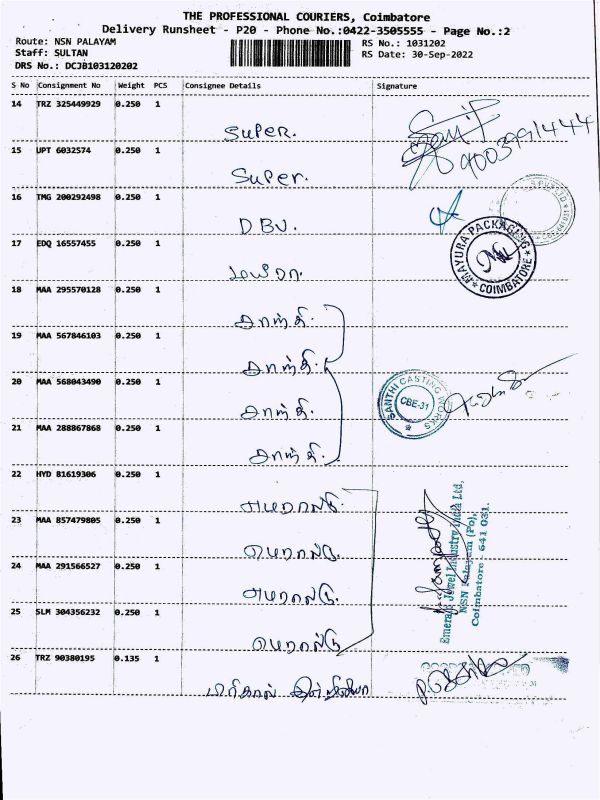 THE PROFESSIONAL COURIERS, Coimbatore
Delivery Runsheet - P20 - Phone No.:0422-3505555 - Page No.:2
Route: NSN PALAYAM
RS No.: 1031202
Staff: SULTAN
RS Date: 30-Sep-2022
DRS No.: DCJB103120202
S No Consignment No Weight PCS Consignee Details Signature
14 TRZ 325449929 0.250 1
Super.
9003991444
15 UPT 6032574 0.250 1
Super.
16 TMG 200292498 0.250 1
DBV.
17 EDQ 16557455 0.250 1
மயூரா.
MAYURA PACKAGING
COIMBATORE
18 MAA 295570128 0.250 1
சாந்தி.
19 MAA 567846103 0.250 1
சாந்தி.
20 MAA 568043490 0.250 1
சாந்தி.
SANTHI CASTING WORKS
CBE-31
21 MAA 288867868 0.250 1
சாந்தி.
22 HYD 81619306 0.250 1
எமரால்டு.
23 MAA 857479805 0.250 1
எமரால்டு.
24 MAA 291566527 0.250 1
எமரால்டு.
Emerald Jewel Industry India Ltd,
NSN Palayam (Po),
Coimbatore - 641 031.
25 SLM 304356232 0.250 1
எமரால்டு
26 TRZ 90380195 0.135 1